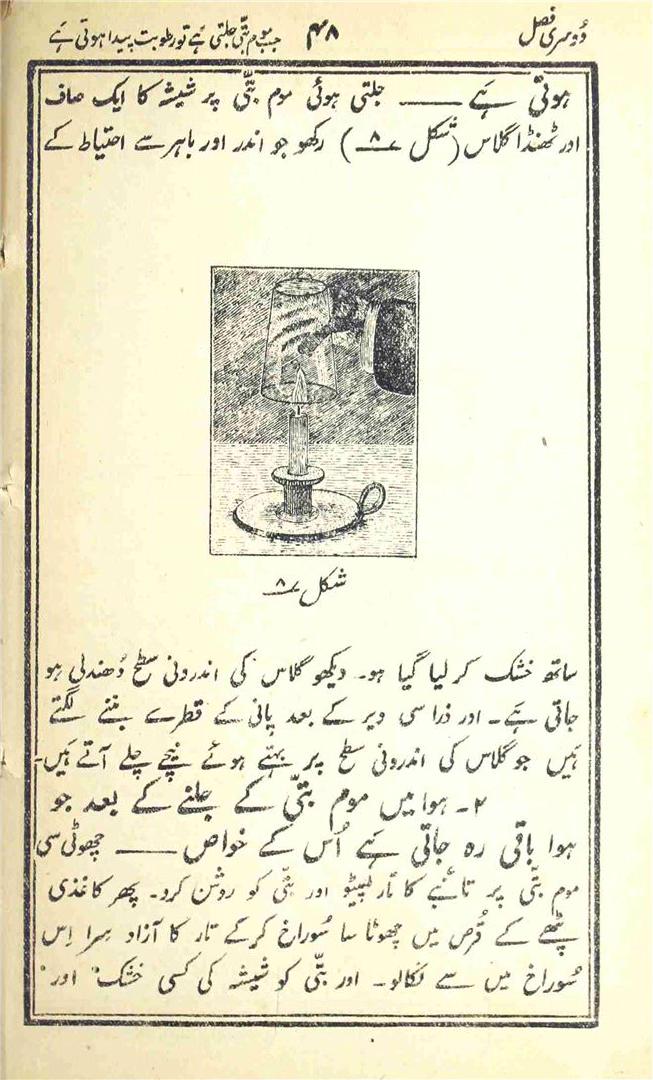 دُوسری فصل ۴۸ جب موم بتّی جلتی ہَے تو رطوبت پیدا ہوتی ہَے
ہوتی ہَے ــــ جلتی ہوئی موم بتّی پر شیشہ کا ایک صاف
اور ٹھنڈا گلاس (شکل ۸) رکھو جو اندر اور باہر سے احتیاط کے
شکل ۸
ساتھ خشک کر لیا گیا ہو۔ دیکھو گلاس کی اندرونی سطح دُھندلی ہو
جاتی ہَے۔ اور ذرا سی دیر کے بعد پانی کے قطرے بننے لگتے
ہَیں جو گلاس کی اندرونی سطح پر بہتے ہوئے نیچے چلے آتے ہَیں۔
۲۔ ہوا میں موم بتّی کے جلنے کے بعد جو
ہوا باقی رہ جاتی ہَے اُس کے خواص ــــ چھوٹی سی
موم بتّی پر تانبے کا تار لپیٹو اور بتّی کو روشن کردو۔ پھر کاغذی
پٹھے کے قُرص میں چھوٹا سا سُوراخ کرکے تار کا آزاد سِرا اِس
سُوراخ میں سے نکالو۔ اور بتّی کو شیشہ کی کسی خشک اور